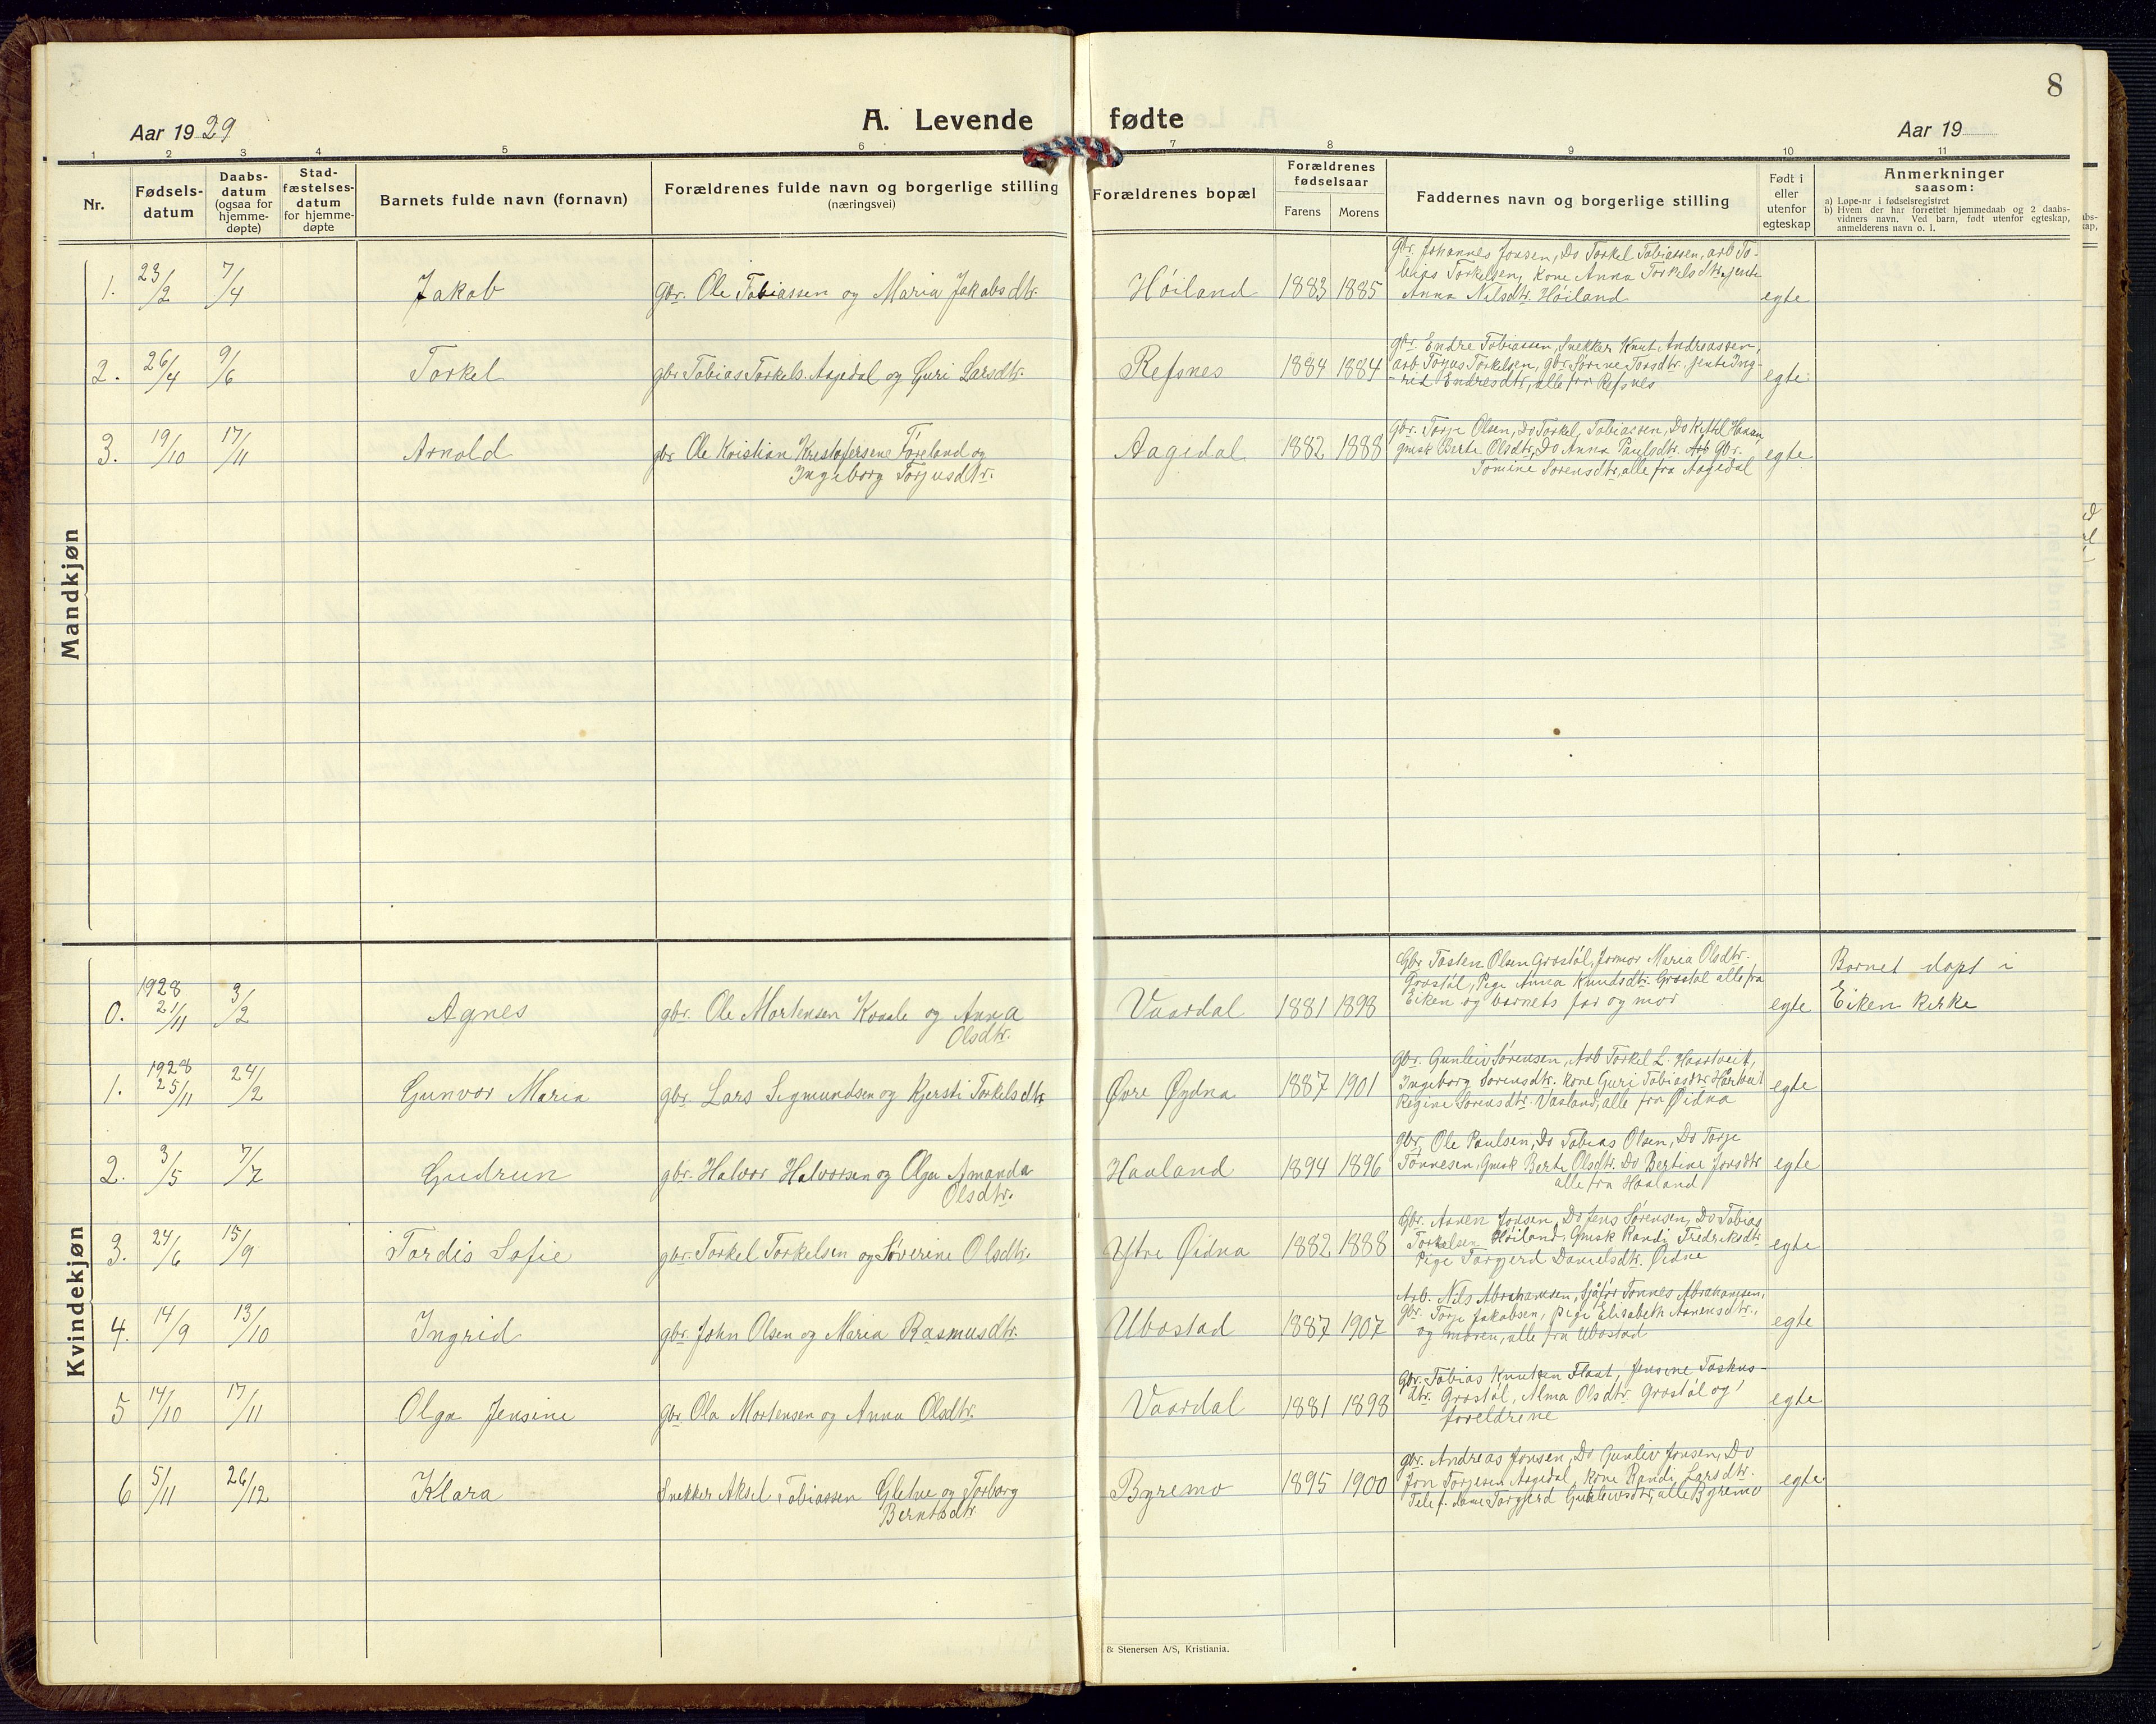 8
A. Levende fødte
Aar 1929
Aar 19
1 2 3 4 5 6 7 8 9 10 11
Nr.
Fødsels-
datum
Daabs-
datum
(ogsaa for
hjemme-
døpte)
Stad-
fæstelses-
datum
for hjemme-
døpte
Barnets fulde navn (fornavn)
Forældrenes fulde navn og borgerlige stilling
(næringsvei)
Forældrenes bopæl
Forældrenes
fødselsaar
Farens Morens
Faddernes navn og borgerlige stilling
Født i
eller
utenfor
egteskap
Anmerkninger
saasom:
a) Løpe-nr i fødselsregistret
b) Hvem der har forrettet hjemmedaab og 2 daabs-
vidners navn. Ved barn, født utenfor egteskap,
anmelderens navn o. l.
Mandkjøn
1. 23/2 7/4 Jakob gbr. Ole Tobiassen og Maria Jakobsdtr. Høiland 1883 1885
Gbr. Johannes Jonsen, Do Torkel Tobiassen, arb To-
bias Torkelsen, Kone Anna Torkelsdtr, jente
Anna Nilsdtr. Høiland
egte
2. 26/4 9/6 Torkel gbr Tobias Torkels. Aagedal og Guri Larsdtr. Refsnes 1884 1884
gbr. Endre Tobiassen, Snekker Knut Andreassen,
arb Torjus Torkelsen, gbr Sørine Torsdtr. jente Ing-
rid Endresdtr, alle fra Refsnes
egte
3. 19/10 17/11 Arnold gbr Ole Kristian Kristofersene Føreland og
Ingeborg Torjusdtr.
Aagedal 1882 1888
Gbr. Torje Olsen, Do Torkel Tobiassen, Do Ketil
gmsk Berte Olsdtr, Do Anna Paulsdtr. Gbr.
Tomine Sørensdtr, alle fra Aagedal
egte
Kvindekjøn
0. 1928
21/11 3/2 Agnes gbr. Ole Mortensen Kvaale og Anna
Olsdtr.
Vaardal 1881 1898
Gbr Tosten Olsen Grostøl, formor Maria Olsdtr.
Grostøl, Pige Anna Knudsdtr. Grostøl alle fra
Eiken og barnets far og mor
egte
Barnet døpt i
Eiken Kirke
1. 1928
25/11 24/2 Gunvor Maria gbr. Lars Sigmundsen og Kjersti Torkelsdtr Øvre Øydna 1887 1901
Gbr. Gunleiv Sørensen, Arb Torkel L. Haartveit,
Ingeborg Sørensdtr. kone Guri Tobiasdtr Hårtveit
Regine Sørensdtr. Vasland, alle fra Øidna
egte
2. 3/5 7/7 Gudrun gbr. Halvor Halvorsen og Olga Amanda
Olsdtr.
Haaland 1894 1896
Gbr. Ole Paulsen, Do Tobias Olsen, Do Torje
Tønnesen, Gmsk Berte Olsdtr. Do Bertine Jonsdtr
alle fra Haaland
egte
3. 24/6 15/9 Tordis Sofie gbr. Torkel Torkelsen og Søverine Olsdtr. Ytre Øidna 1882 1888
Gbr. Aanen Jonsen, Do Jens Sørensen, Do Tobias
Torkelsen Høiland, Gmsk Randi Fredriksdtr
Pige Torgjerd Danielsdtr. Øidne
egte
4. 14/9 13/10 Ingrid gbr. John Olsen og Maria Rasmusdtr. Ubostad 1887 1907
Arb. Nils Abrahamsen, Sjåfør Tønnes Abrahamsen,
Gbr. Torje Jakobsen, pige Elisabeth Aanensdtr.,
og moren, alle fra Ubostad
egte
5 14/10 17/11 Olga Jensine gbr Ola Mortensen og Anna Olsdtr. Vaardal 1881 1898
Gbr. Tobias Knutsen Flaat, Jensine
dtr. Grostøl, Alma Olsdtr Grostøl og
foreldrene
egte
6 5/11 26/12 Klara Snekker Aksel Tobiassen Gletne og Torborg
Berntsdtr.
Byremo 1895 1900
gbr. Andreas Jonsen, Do Gunleiv Jonsen, Do
Jon Torjesen Aagedal, kone Randi Larsdtr.
Telef. dame Torgjerd Gunleivsdtr, alle Byremo
egte
& Stenersen A/S, Kristiania.